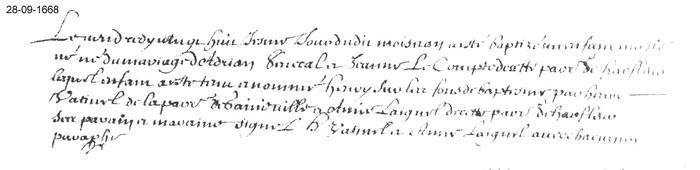 28-09-1668
Le vendredy vingt huict jesme jour dudit mois on a esté baptizé un enfant masle
né né du mariage d'Adrian Duval et Jeanne Le Compte de cette paroe de harfleur
laquel enfant a esté tenu et nommé Henry sur les fons de baptesme par henry
Vatinel de la paroe de et Anne Laignel de cette paroe de harfleur
parain et maraine signé H Vatinel et Anne Laignel avec chacun un
paraphe